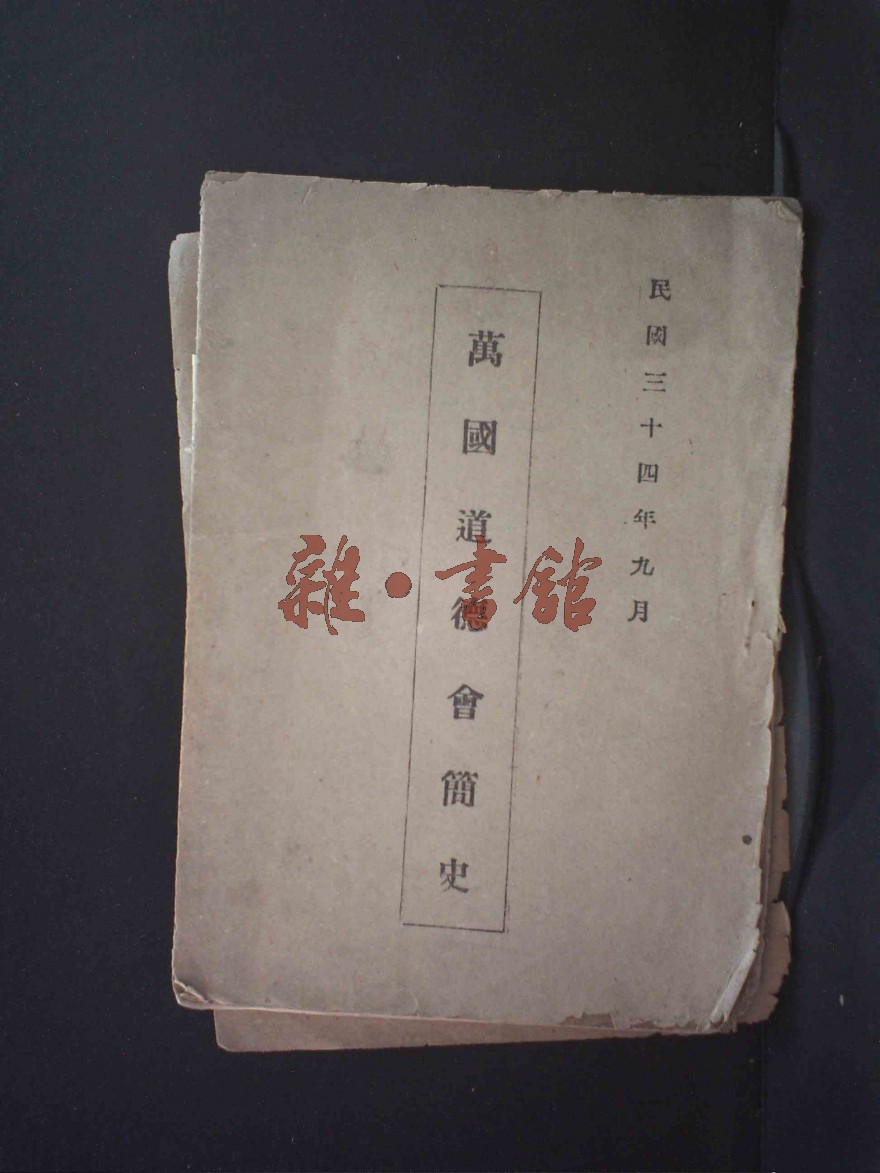 民國三十四年九月
萬國道德會簡史
雜·書館